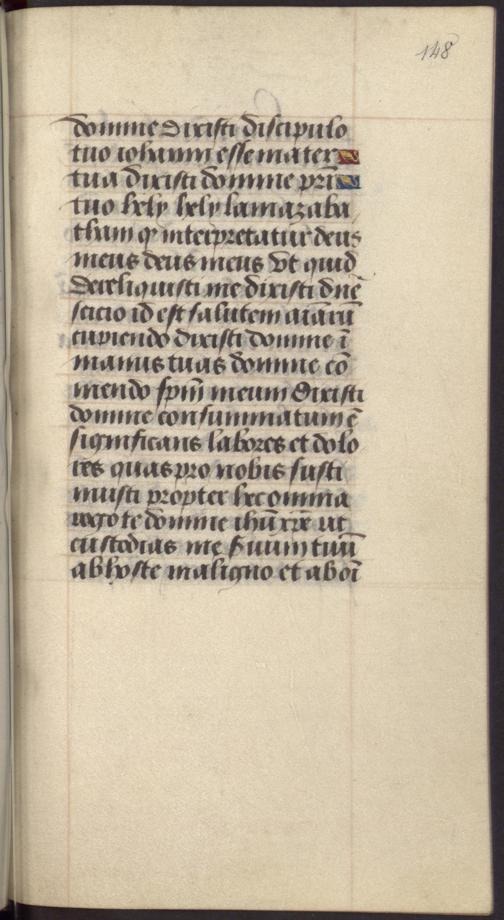 148
domine dixisti discipulo
tuo iohanni esse mater
tua dixisti domine pr̄i
tuo hely hely lamazaba
thani qͥ interpretatur deus
meus deus meus vt quid
dereliquisti me dixisti dn̄e
scicio id est salutem aīarū
cupiendo dixisti domine ī
manus tuas domine cō
mendo sp̄m meum dixisti
domine consummatum ē
significans labores et dolo
res quas pro nobis susti
nuisti propter hec omnia
rogo te domine ihū xp̄e ut
custodias me ẜuum tuū
ab hoste maligno et ab oī